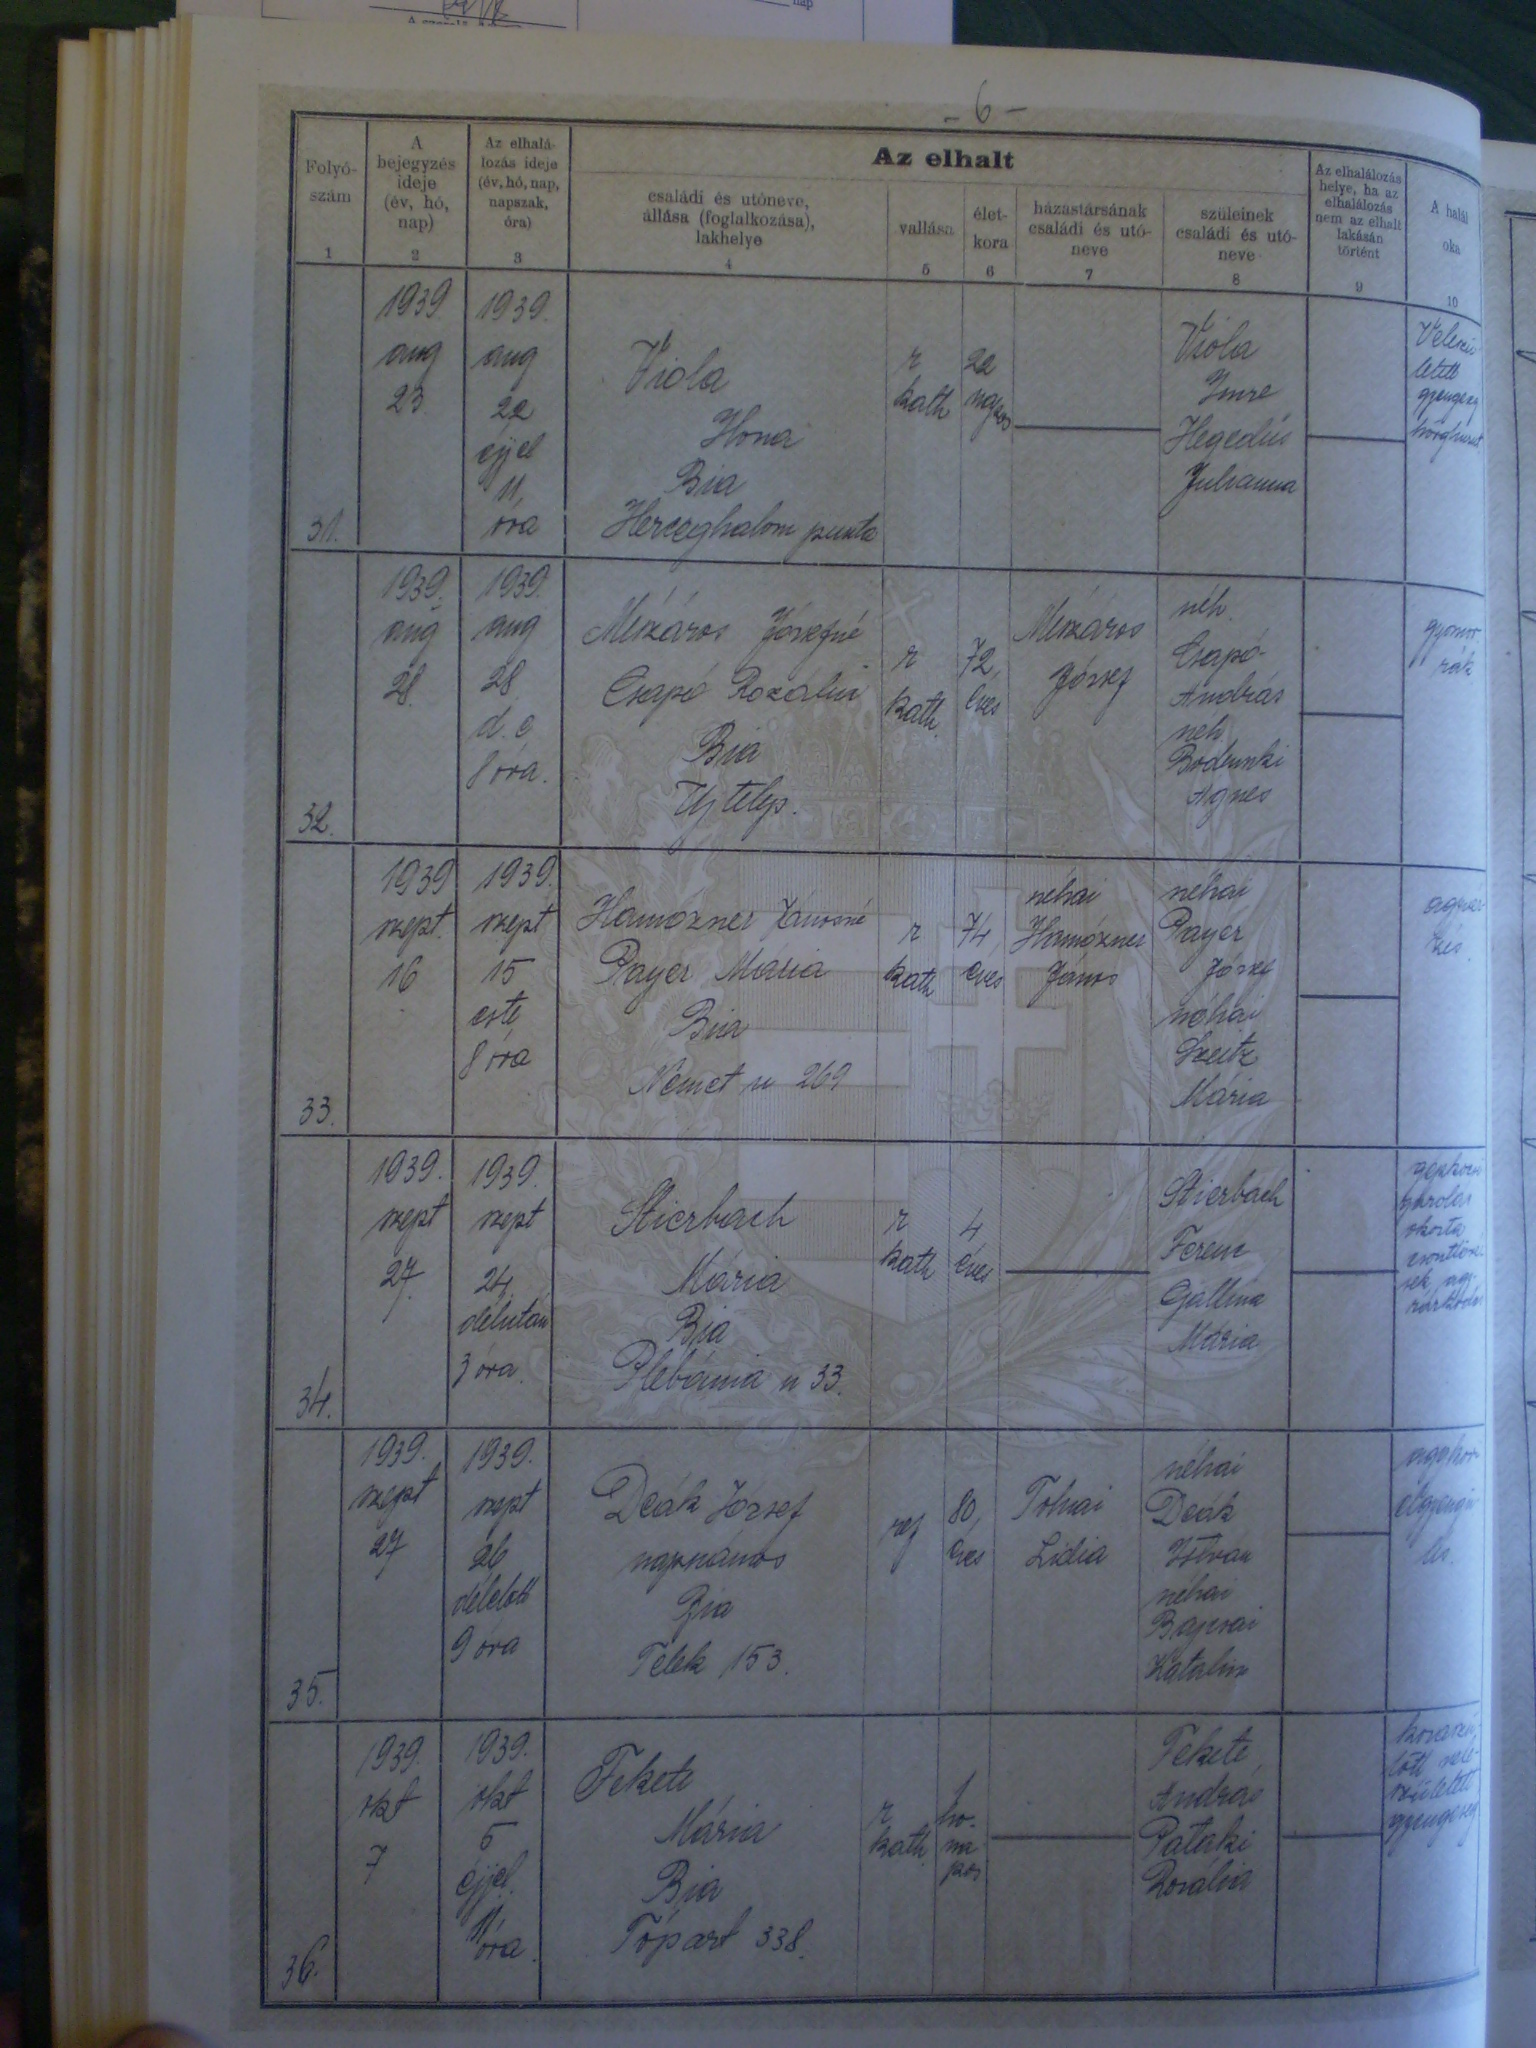 - 6 -
Folyó-
szám
1
A
bejegyzés
ideje
(év, hó,
nap)
2
Az elhalá-
lozás ideje
(év, hó, nap,
napszak,
óra)
3
Az elhalt
családi és utóneve,
állása (foglalkozása),
lakhelye
4
vallása
5
élet-
kora
6
házastársának
családi és utó-
neve
7
szüleinek
családi és utó-
neve
8
Az elhalálozás
helye, ha az
elhalálozás
nem az elhalt
lakásán
történt
9
A halál
oka
10
31.
1939
aug
23
1939.
aug
22
éjjel
11,
óra
Viola
Ilona
Bia
Herceghalom puszta
r
kath
22
napos
Viola
Imre
Hegedűs
Julianna
Veleszü-
letett
gyengeség
hörghurut
32.
1939.
aug
28.
1939.
aug
28.
d. e
8 óra.
Mészáros Józsefné
Csapó Rozália
Bia
Uj telep.
r
kath.
72,
éves
Mészáros
József
néh.
Csapó-
András
neh.
Ágnes
gyomor-
rák
33.
1939
szept.
16
1939.
szept
15
este
8 óra
Hamózner Jánosné
Payer Mária
Bia
Német u 269
r
kath
74,
éves
néhai
Hamózner
János
néhai
Payer
József
néhai
Szeitz
Mária
agyvér-
zés.
34.
1939.
szept
27.
1939.
szept
24,
délután
3 óra.
Stierbach
Mária
Bia
Plébánia u 33.
r
kath
4
éves
Stierbach
Ferenc
Gallina
Mária
gépkocsi
okozta
35.
1939.
szept
27
1939.
szept
26
délelőtt
9 óra
Deák József
napszámos
Bia
Telek 153.
ref
80,
éves
Tolnai
Lidia
néhai
Deák
István
néhai
Bajnai
Katalin
aggkori
elgyengü-
lés.
36.
1939.
okt
7
1939.
okt
5
éjjel.
11
óra.
Fekete
Mária
Bia
Tópart 338.
r
kath.
1
hó-
na
pos
Fekete
András
Pataki
Rozália
koraszü-
lött vele-
született
gyengeség